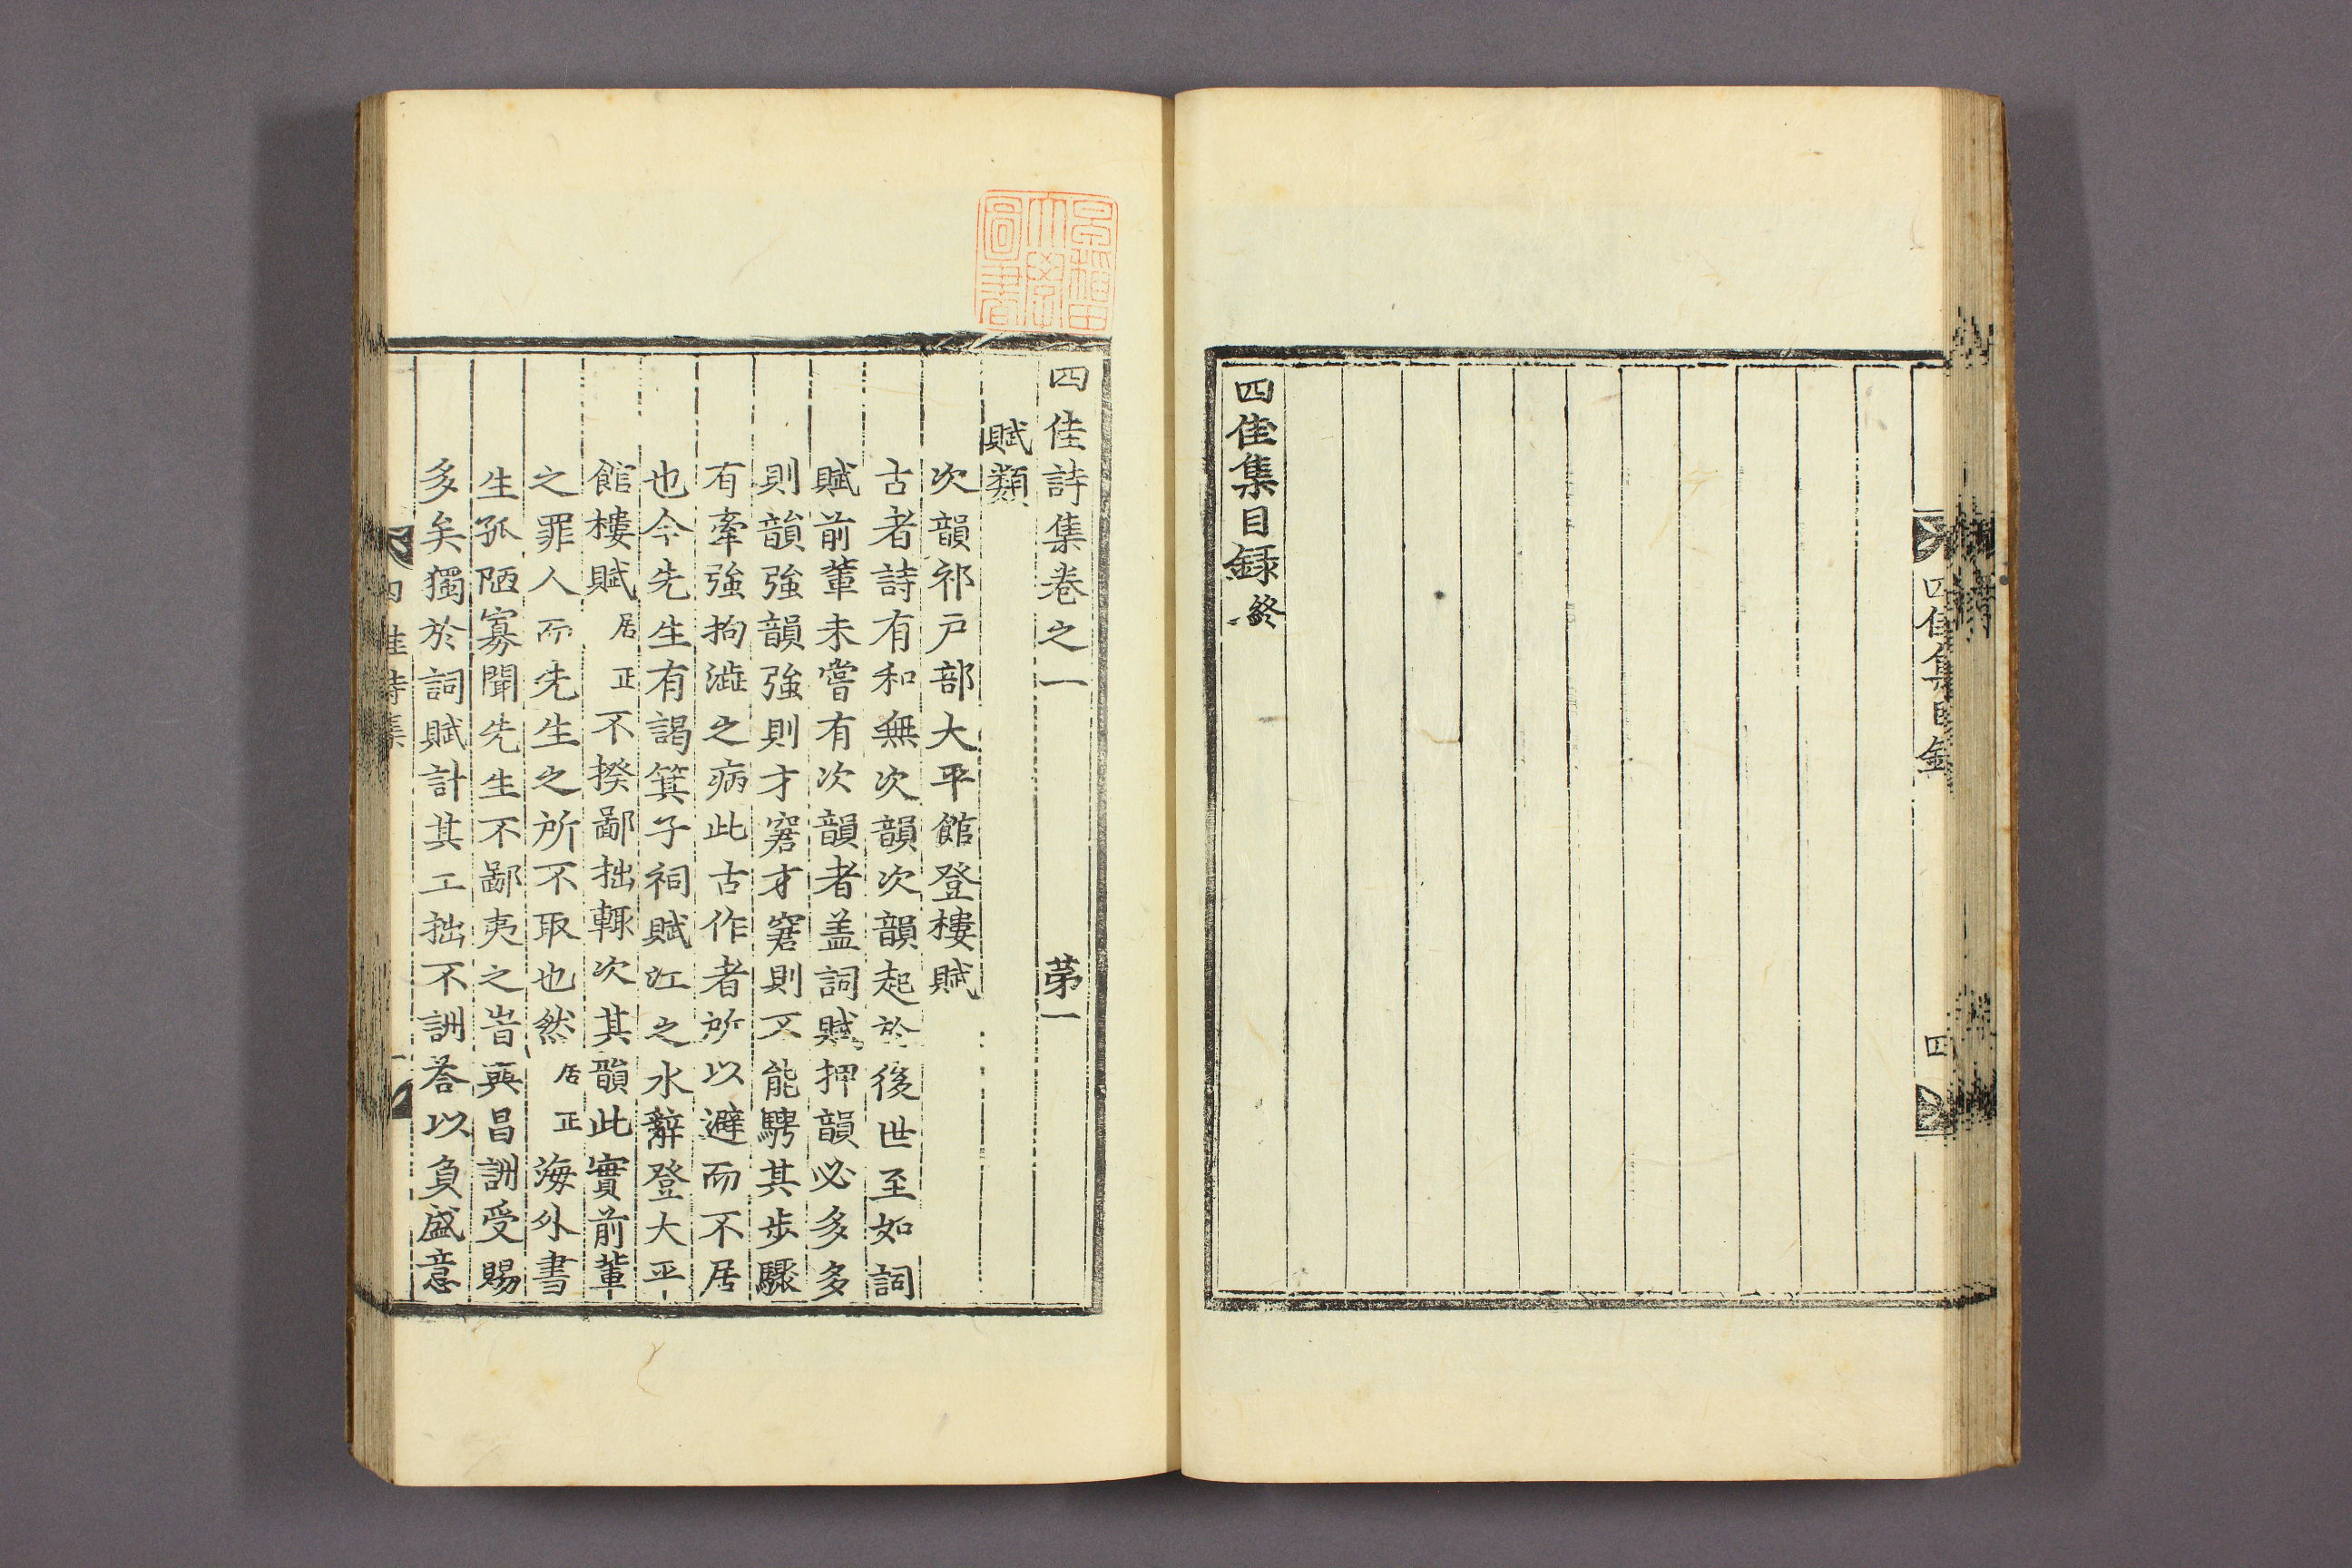 四佳集目録 終
四佳集目録
四
早稲田
大學
圖書
四佳詩集卷之一 苐一
賦類
次韻祁戸部大平館登樓賦
古者詩有和無次韻次韻起於後世至如詞
賦前輩未嘗有次韻者盖詞賦押韻必多多
則韻強韻強則才窘才窘則不能騁其歩驟
有牽強拘澁之病此古作者所以避而不居
也今先生有謁箕子祠賦江之水辭登大平
館樓賦居正不揆鄙拙輒次其韻此實前輩
之罪人而先生之所不取也然居正海外書
生孤陋寡聞先生不鄙夷之旹與昌詶受賜
多矣獨於詞賦計其工拙不詶荅以負盛意
四佳詩集
一